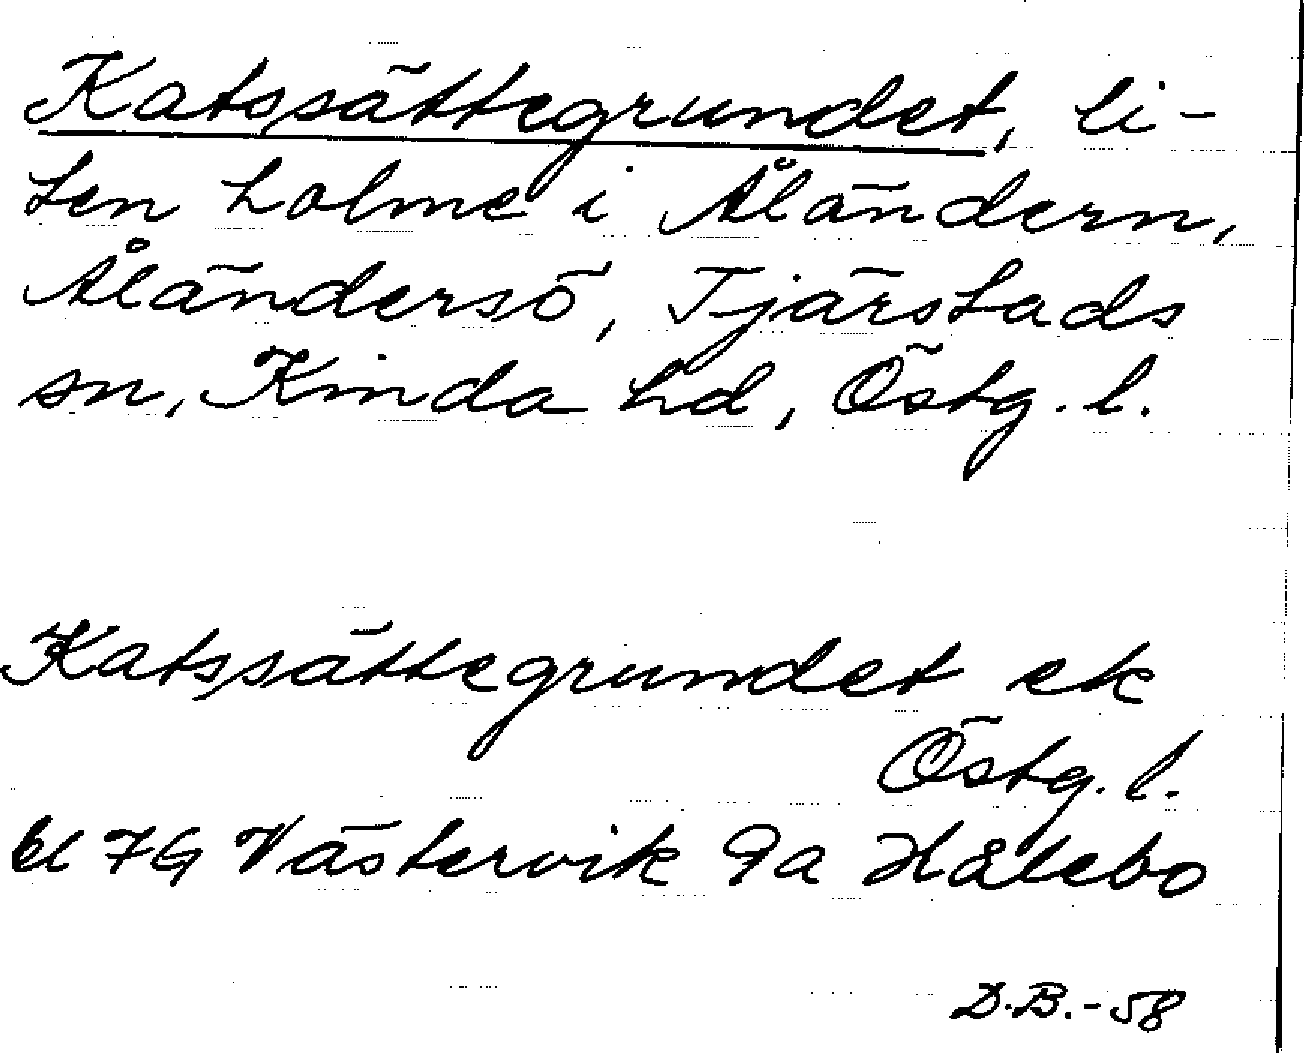 Katssättegrundet, li-
ten holme i Åländern,
Åländersö, Tjärstads
sn, Kinda hd, Östg. l.
Katssättegrundet ek
Östg. l.
bl 7G Västervik 9a Hålebo
D.B.-58